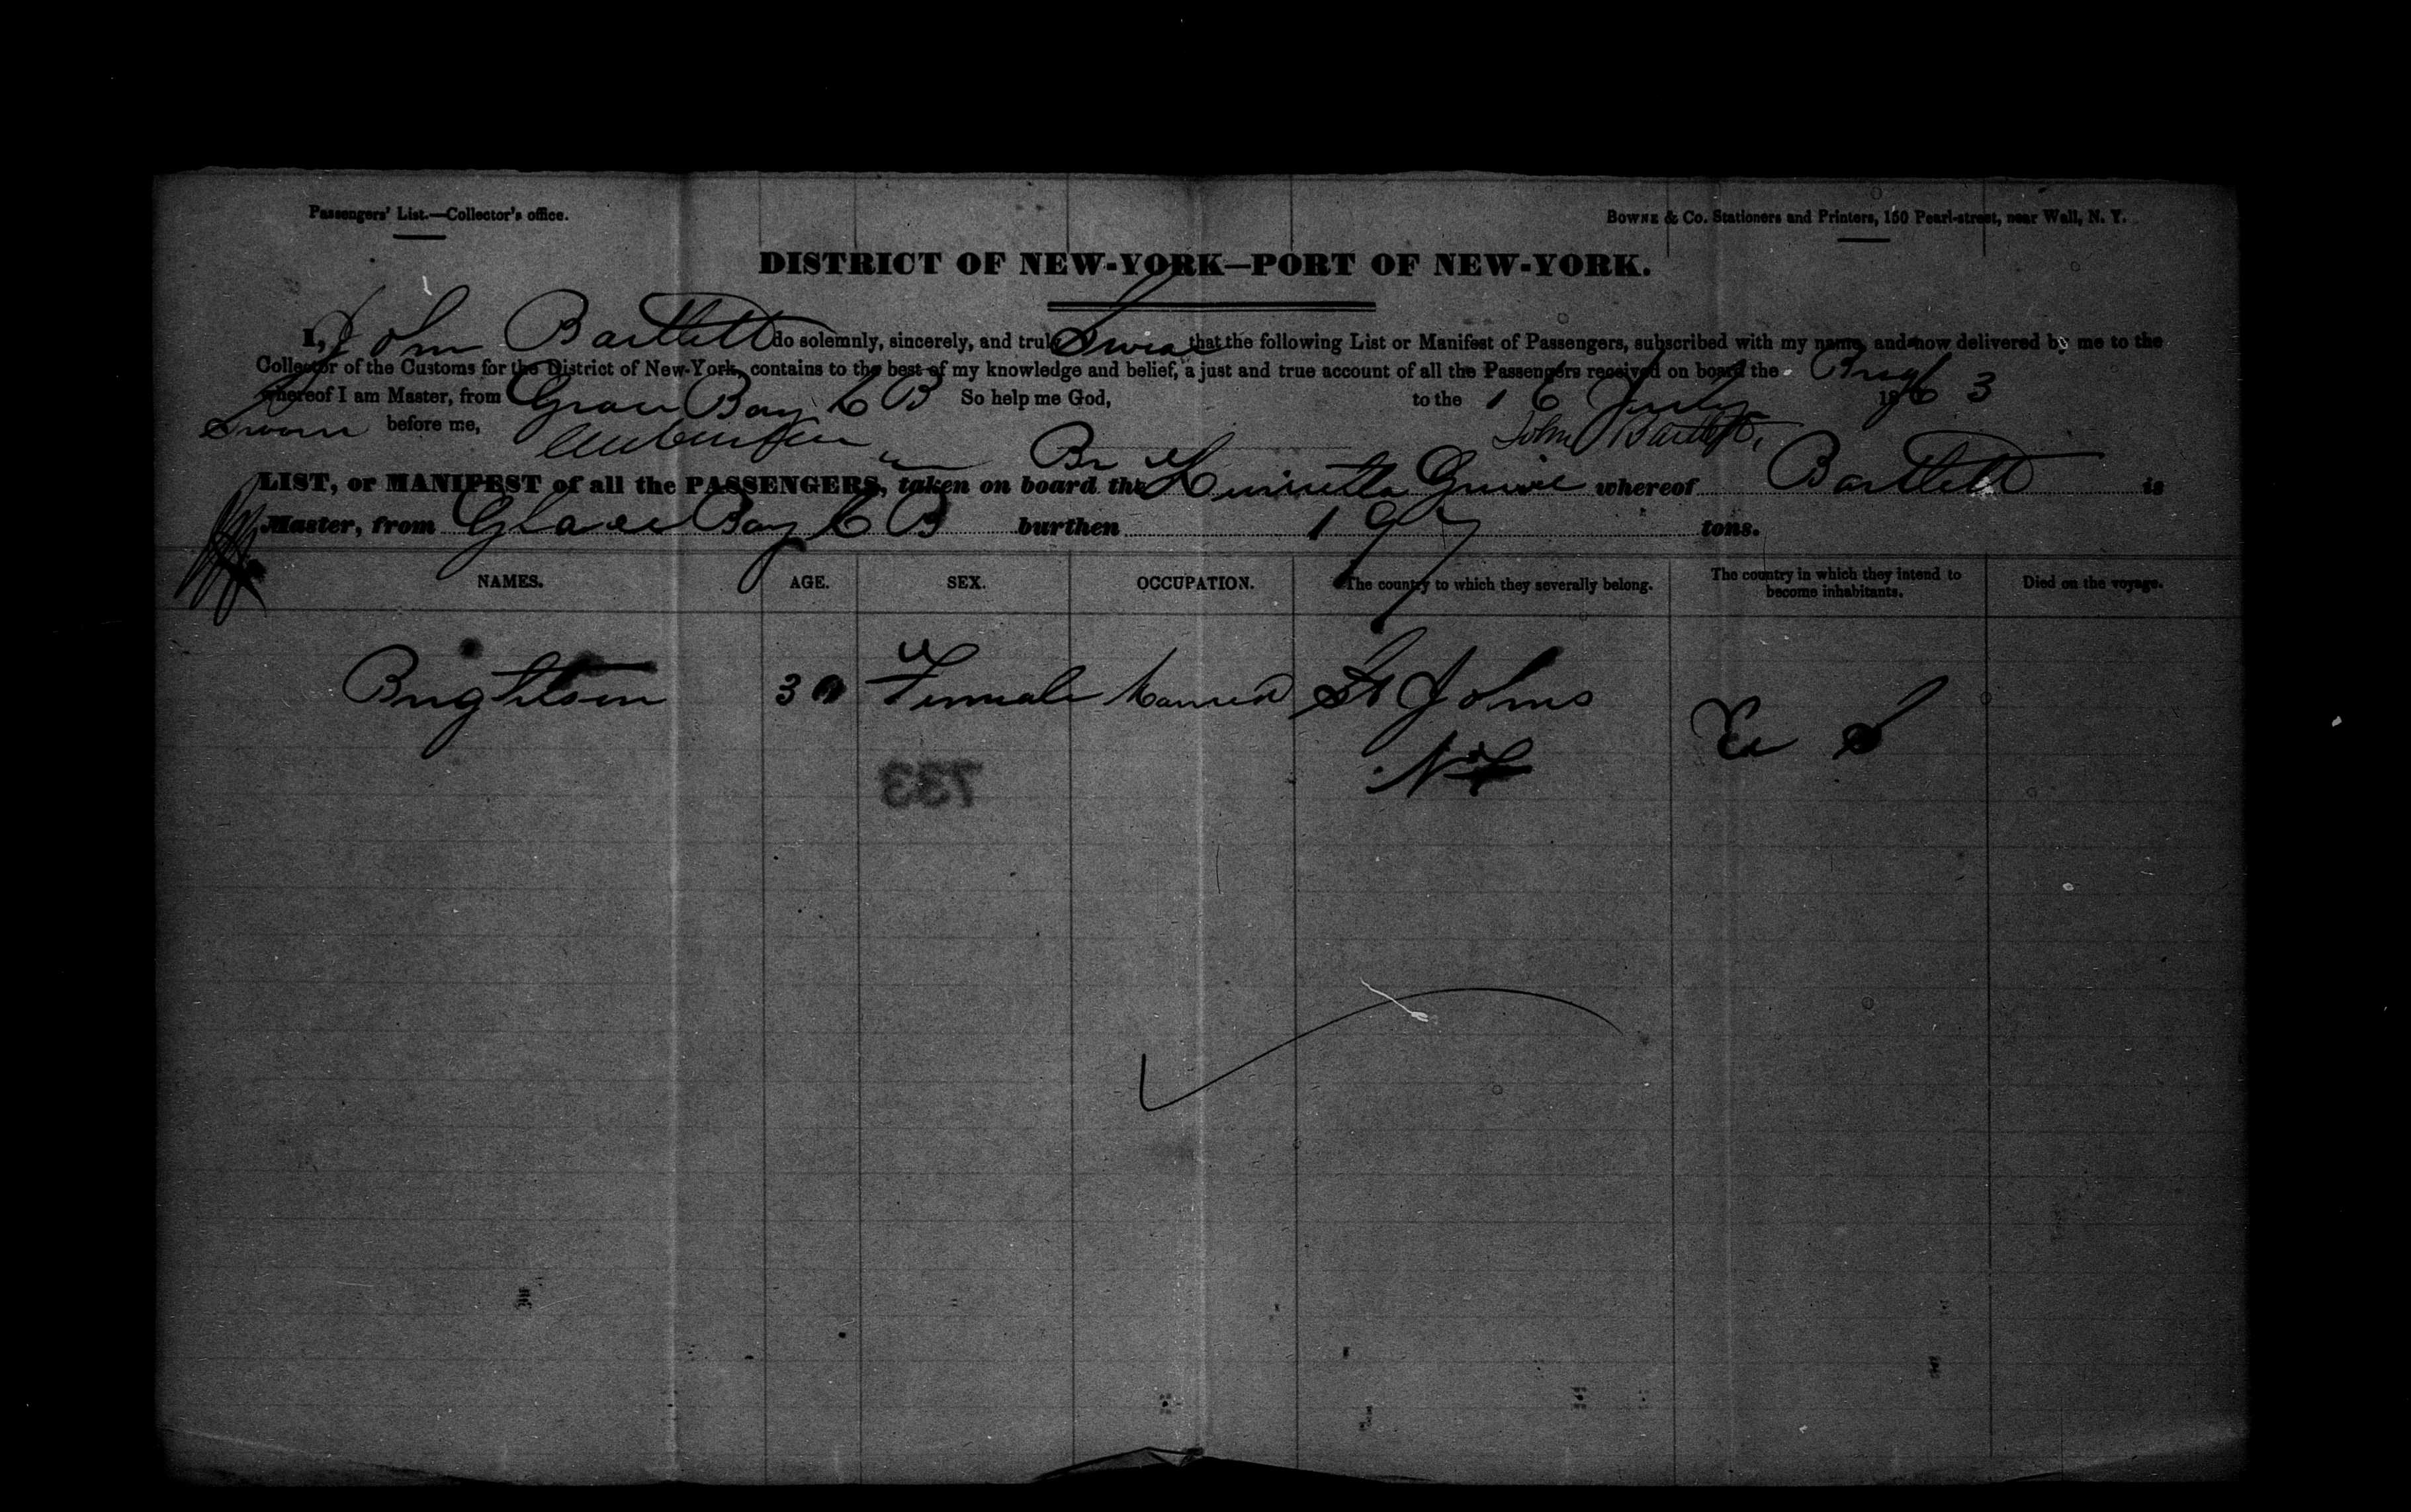 Passengers' List.—Collector's office.
BOWNE & Co. Stationers and Printers, 150 Pearl-street, near Wall, N. Y.
DISTRICT OF NEW-YORK—PORT OF NEW-YORK.
I, John Bartlett do solemnly, sincerely, and truly Swear that the following List or Manifest of Passengers, subscribed with my name, and now delivered by me to the
Collector of the Customs for the District of New-York, contains to the best of my knowledge and belief, a just and true account of all the Passengers received on board the Brig
whereof I am Master, from Bay C B So help me God, to the 16 July 1863
Sworn before me, John Bartlett
LIST, or MANIFEST of all the PASSENGERS, taken on board the Br Henrietta whereof Bartlett is
Master, from Glace Bay C B burthen 197 tons.
NAMES. AGE. SEX. OCCUPATION. The country to which they severally belong. The country in which they intend to become inhabitants. Died on the voyage.
30 Female Married St Johns
N F
U S
733